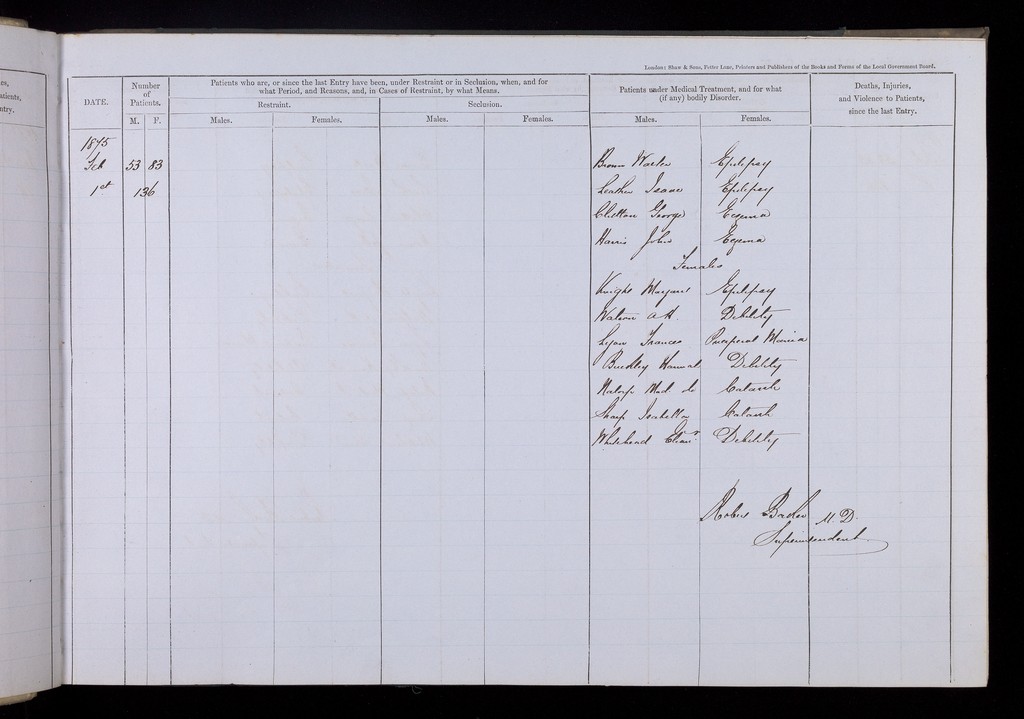 es,
atients,
ntry.
London: Shaw & Sons, Fetter Lane, Printers and Publishers of the Books and Forms of the Local Government Board.
DATE.
Number of Patients.
M. F.
Patients who are, or since the last Entry have been, under Restraint or in Seclusion, when, and for
what Period, and Reasons, and, in Cases of Restraint, by what Means.
Restraint. Seclusion.
Males. Females. Males. Females.
Patients under Medical Treatment, and for what
(if any) bodily Disorder.
Males. Females.
Deaths, Injuries,
and Violence to Patients,
since the last Entry.
1875
Feb 53 83 Brown Walter Epilepsy
1st 136 Leather Isaac Epilepsy
George Eczema
Harris John Eczema
Females
Knight Margaret Epilepsy
Watson Debility
Frances Puerperal Mania
Buckley Hannah Debility
Catarrh
Sharp Isabella Catarrh
Whitehead Debility
Robert M.D.
Superintendent